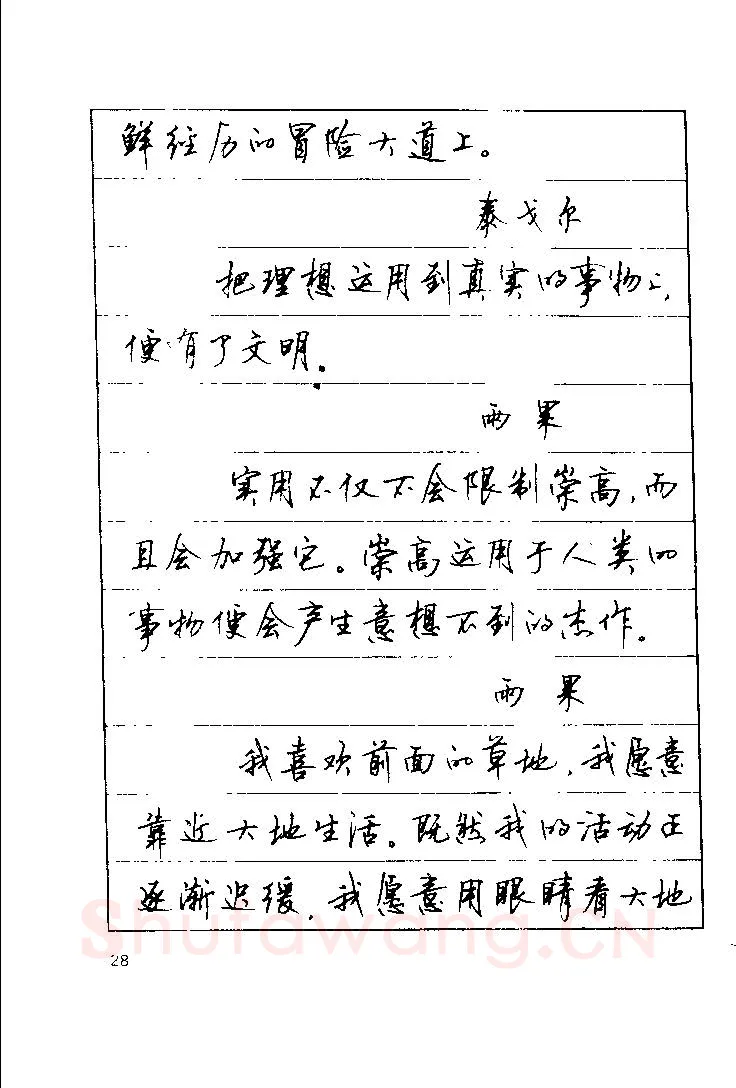 鲜经历的冒险大道上。
泰戈尔
把理想运用到真实的事物上,
便有了文明.
雨果
实用不仅不会限制崇高,而
且会加强它。崇高运用于人类的
事物便会产生意想不到的杰作。
雨果
我喜欢前面的草地,我愿意
靠近大地生活。既然我的活动正
逐渐迟缓,我愿意用眼睛看大地
Shufawang.CN
28